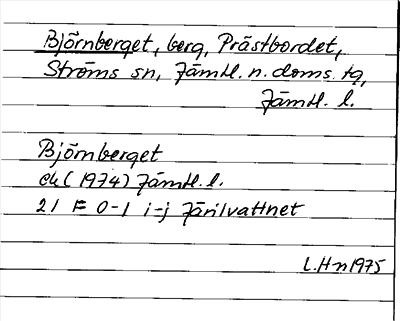 Björnberget, berg, Prästbordet,
Ströms sn, Jämtl. n. doms. tg,
Jämtl. l.
Björnberget
ek (1974) Jämtl. l.
21 F 0-1 i-j Järilvattnet
L.Hn 1975